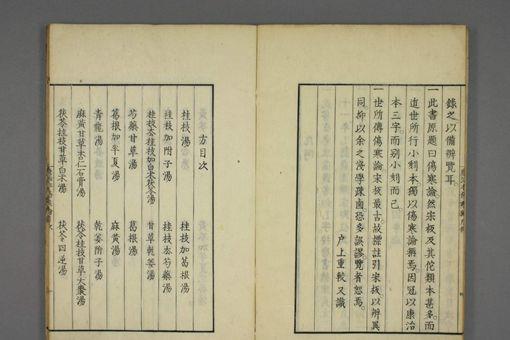 錄之以備辨覽耳
一此書原題曰傷寒論然宋板及其佗類本甚多而
近世所行小刻本獨以傷寒論稱焉因冠以康治
本三字而別小刻而已
一世所傳傷寒論宋板最古故標註引宋板以辨異
同抑以余之淺學疎鹵恐多誤謬覽者恕焉
戶上重較又識
方目次
桂枝湯 桂枝加葛根湯
桂枝加附子湯 桂枝去芍藥湯
桂枝去桂枝加白朮茯苓湯 甘草乾姜湯
芍藥甘草湯 葛根湯
葛根加半夏湯 麻黃湯
青龍湯 乾姜附子湯
麻黃甘草杏仁石膏湯 茯苓桂枝甘草大棗湯
茯苓桂枝甘草白朮湯 茯苓四逆湯